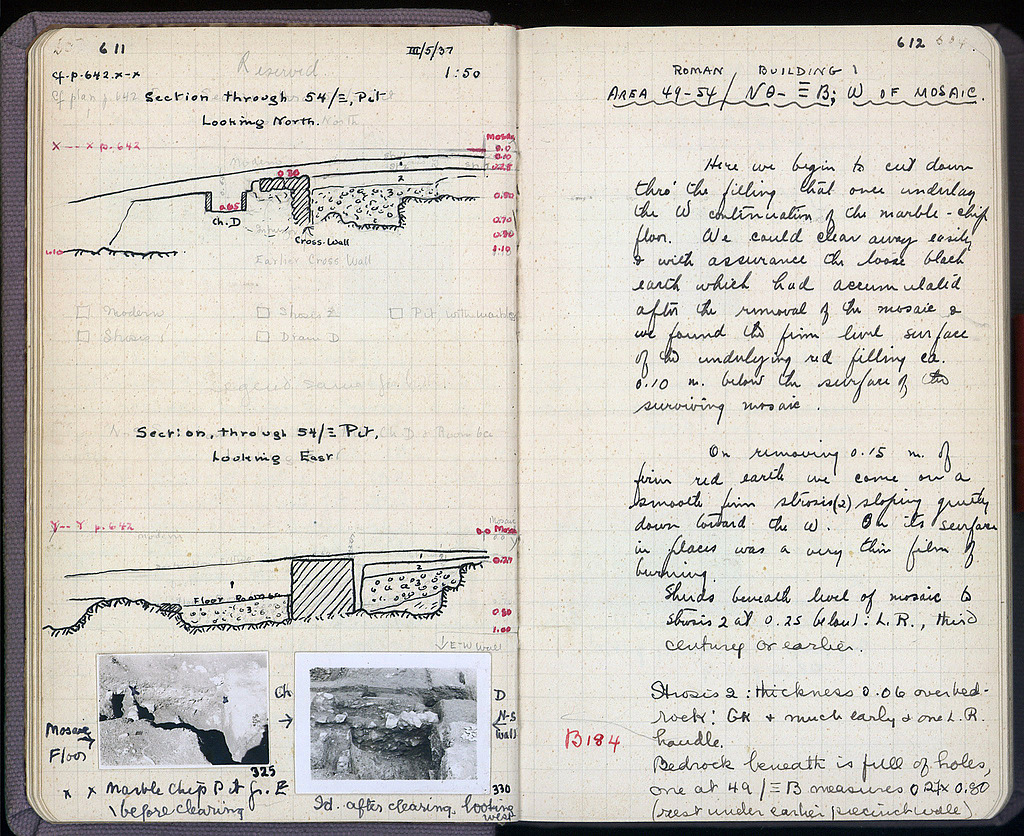 611
III/5/37
cf. p. 642. x-x
Reserved
1:50
Section through 54/Ξ, Pit
Looking North.
X---X p. 642
Mosaic
0.0
0.10
0.25
modern
0.30
2
3
0.50
0.65
Ch. D
0.70
Cross-Wall
0.90
1.10
1.10
Earlier Cross Wall
Modern
Strosis 2
Pit with marble
Strosis 1
Drain D
Section, through 54/Ξ Pit,
Looking East
Y--Y p. 642
0.0 Mosaic
modern
1
2
0.25
1
Floor Room 6a
3
3
0.80
1.00
↓ E-W Wall
Ch
D
N-S
Wall
Mosaic
Floor
325
330
x x Marble Chip Pit Gr. E
before clearing
Id. after clearing, looking
west
612
ROMAN BUILDING:
AREA 49-54/ΝΘ-ΞΒ; W OF MOSAIC.
Here we begin to cut down
thro' the filling that once underlay
the W continuation of the marble-chip
floor. We could clear away easily
& with assurance the loose black
earth which had accumulated
after the removal of the mosaic &
we found the firm level surface
of the underlying red filling ca.
0.10 m. below the surface of the
surviving mosaic.
On removing 0.15 m. of
firm red earth we come on a
smooth firm strosis(2) sloping gently
down toward the W. On its surface
in places was a very thin film of
burning.
Sherds beneath level of mosaic to
strosis 2 at 0.25 below: L.R., third
century or earlier.
Strosis 2: thickness 0.06 over bed-
rock: Gk & much early & one L.R.
B184
handle.
Bedrock beneath is full of holes,
one at 49/ΞΒ measures 0.24 x 0.80
(rest under earlier precinct wall)